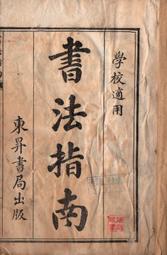 學校適用
書法指南
東昇書局出版